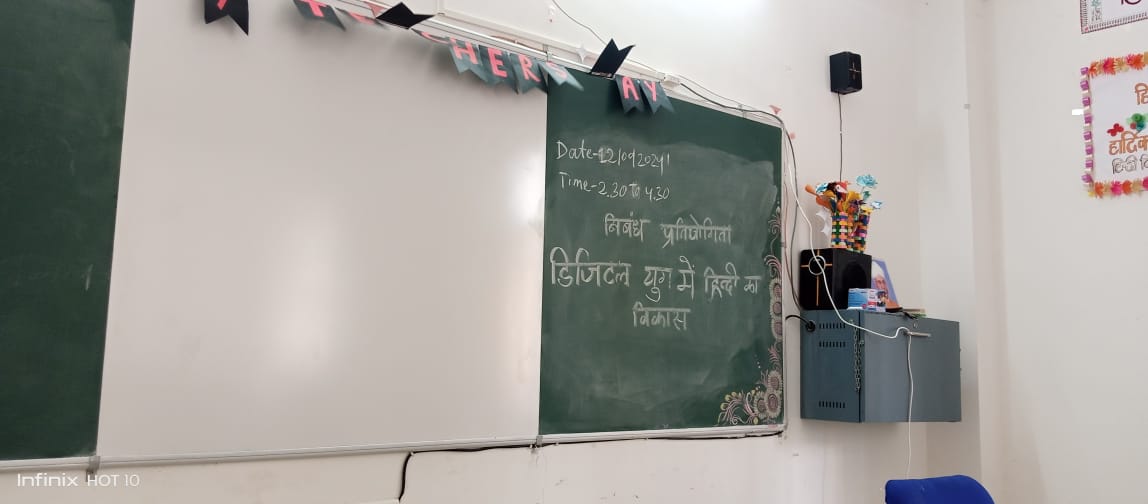 HER
AY
Date-12/09/2024
Time-2.30 to 4.30
निबंध प्रतियोगिता
डिजिटल युग में हिन्दी का
विकास
हि
हार्दिक
हिन्दी
Infinix HOT 10